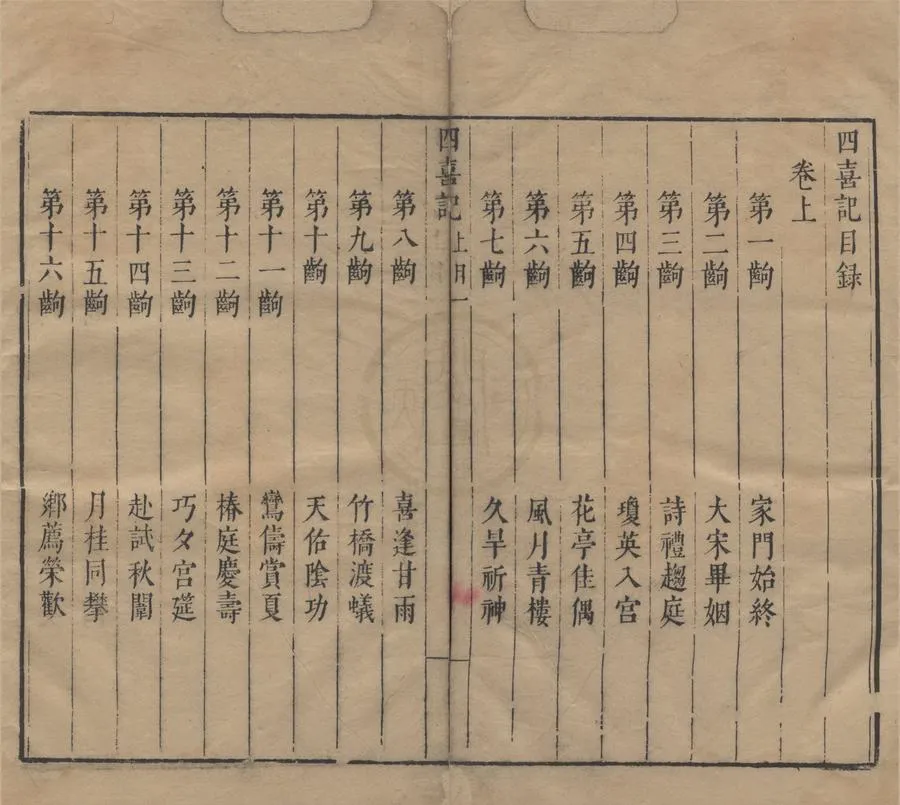 四喜記目録
卷上
第一齣 家門始終
第二齣 大宋畢姻
第三齣 詩禮趨庭
第四齣 瓊英入宫
第五齣 花亭佳偶
第六齣 風月青樓
第七齣 久旱祈神
四喜記 上目 一
第八齣 喜逢甘雨
第九齣 竹橋渡蟻
第十齣 天佑陰功
第十一齣 鸞儔賞夏
第十二齣 椿庭慶壽
第十三齣 巧夕宫筵
第十四齣 赴試秋闈
第十五齣 月桂同攀
第十六齣 鄉薦榮歡